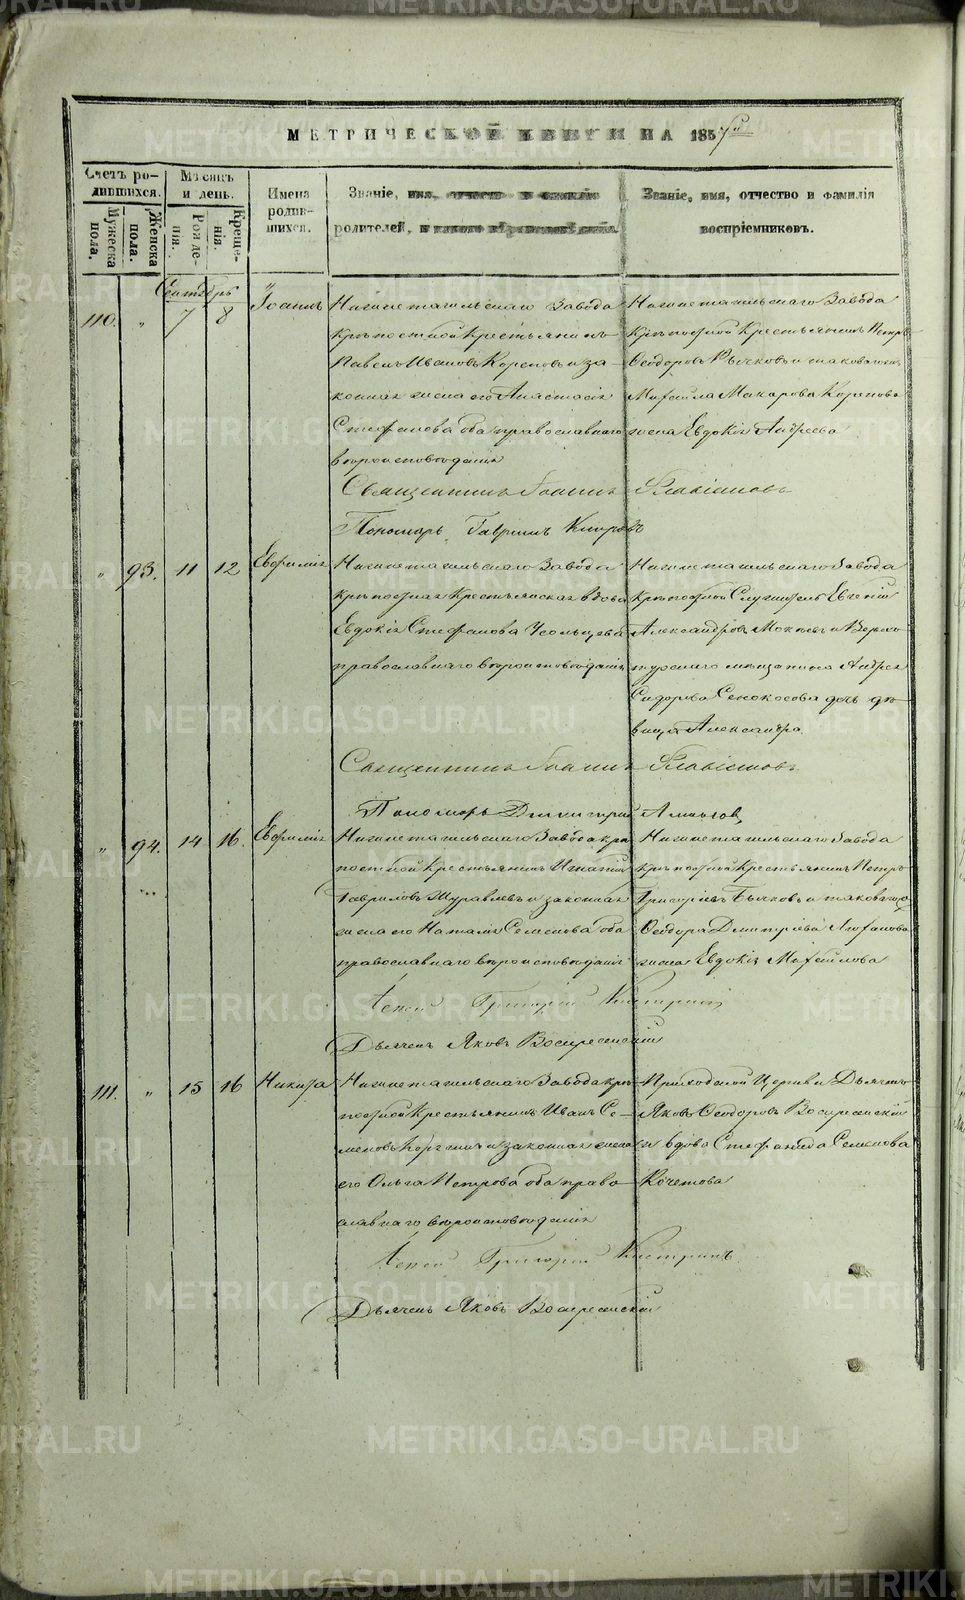 МЕТРИЧЕСКОЙ КНИГИ НА 1857й
Счетъ ро-
дившихся.
Мужеска
пола.
Женска
пола.
Мѣсяцъ
и день.
Рожде-
нія.
Креще-
нія.
Имена
родив-
шихся.
Званіе, имя, отчество и фамилія
родителей, и какого вѣроисповѣданія.
Званіе, имя, отчество и фамилія
воспріемниковъ.
Сентябрь
110. " 7 8 Іоаннъ
Нижнетагильскаго Завода
крѣпостной Крестьянинъ
Павелъ Ивановъ и за-
конная жена его Анастасія
Стефанова оба православнаго
вѣроисповѣданія
Нижнетагильскаго Завода
Крѣпостной Крестьянинъ Петръ
Ѳеодоровъ и таковагожъ
Михаила Макарова
жена Евдокія Андреева
Священникъ Іоаннъ Флавіановъ
Пономарь Гавріилъ
" 93. 11 12 Евфимія
Нижнетагильскаго Завода
крѣпостная Крестьянская вдова
Евдокія Стефанова
православнаго вѣроисповѣданія
Нижнетагильскаго Завода
крѣпостной Служитель Евгеній
Александровъ и Верхо-
турскаго мѣщанина Андрея
Сидорова Сенокосова дочь дѣ-
вица Александра
Священникъ Іоаннъ Флавіановъ
Пономарь Димитрій
" 94. 14 16. Евфимія
Нижнетагильскаго Завода крѣ-
постной Крестьянинъ Игнатій
Гавриловъ Журавлевъ и законная
жена его Наталія Семенова оба
православнаго вѣроисповѣданія
Нижнетагильскаго Завода
крѣпостной Крестьянинъ Петръ
Григорьевъ Бычковъ и таковагожъ
Ѳеодора Дмитріева
жена Евдокія Михайлова
Іерей Григорій
Дьячекъ Яковъ Воскресенскій
111. " 15 16 Никита
Нижнетагильскаго Завода крѣ-
постной Крестьянинъ Иванъ Се-
меновъ и законная жена
его Ольга Петрова оба право-
славнаго вѣроисповѣданія
Приходской Церкви Дьячекъ
Яковъ Ѳеодоровъ Воскресенскій
и вдова Стефанида Семенова
Кочетова
Іерей Григорій
Дьячекъ Яковъ Воскресенскій
METRIKI.GASO-URAL.RU